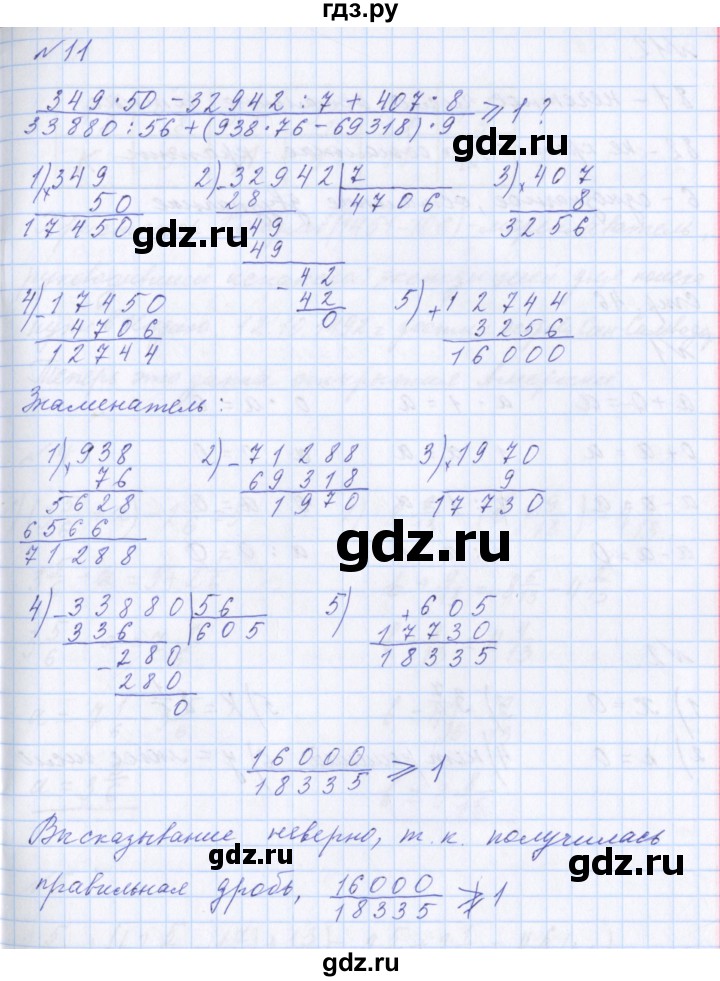 гдз.ру
№11
349·50 − 32942 : 7 + 407·8
33880 : 56 + (938·76 − 69318)·9
⩾ 1 ?
1) × 349
50
17450
2) − 32942 | 7
28 4706
49
49
− 42
42
0
3) × 407
8
3256
4) − 17450
4706
12744
5) + 12744
3256
16000
Знаменатель:
1) × 938
76
5628
6566
71288
2) − 71288
69318
1970
3) × 1970
9
17730
4) − 33880 | 56
336 605
− 280
280
0
5) + 605
17730
18335
16000
18335
⩾ 1
Высказывание неверно, т.к. получилась
правильная дробь, 16000/18335 ⩾̸ 1
gdz.ru
gdz.ru
gdz.ru
gdz.ru
gdz.ru
gdz.ru
gdz.ru